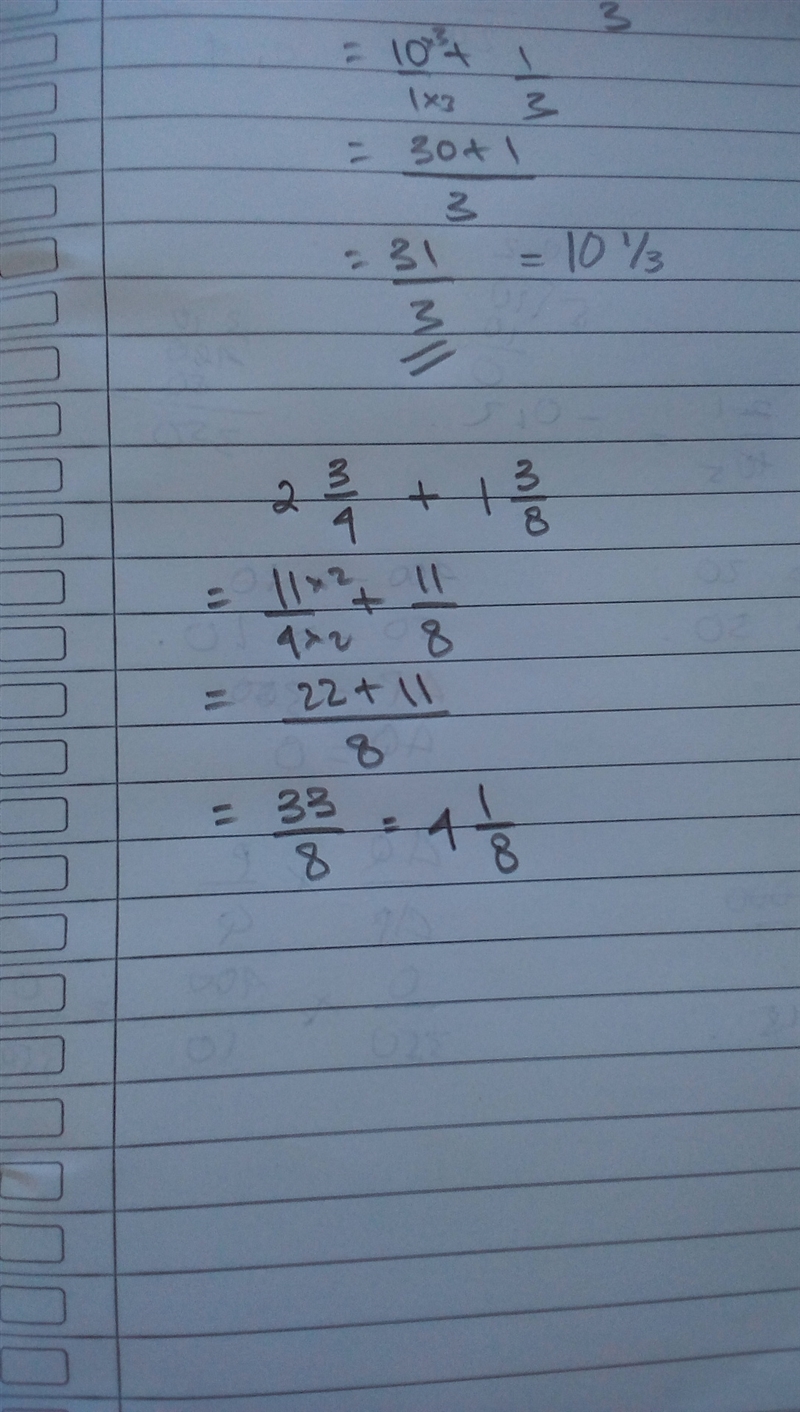 3
= 10×3/1×3 + 1/3
= 30+1/3
= 31/3 = 10 1/3
2 3/4 + 1 3/8
= 11×2/4×2 + 11/8
= 22+11/8
= 33/8 = 4 1/8